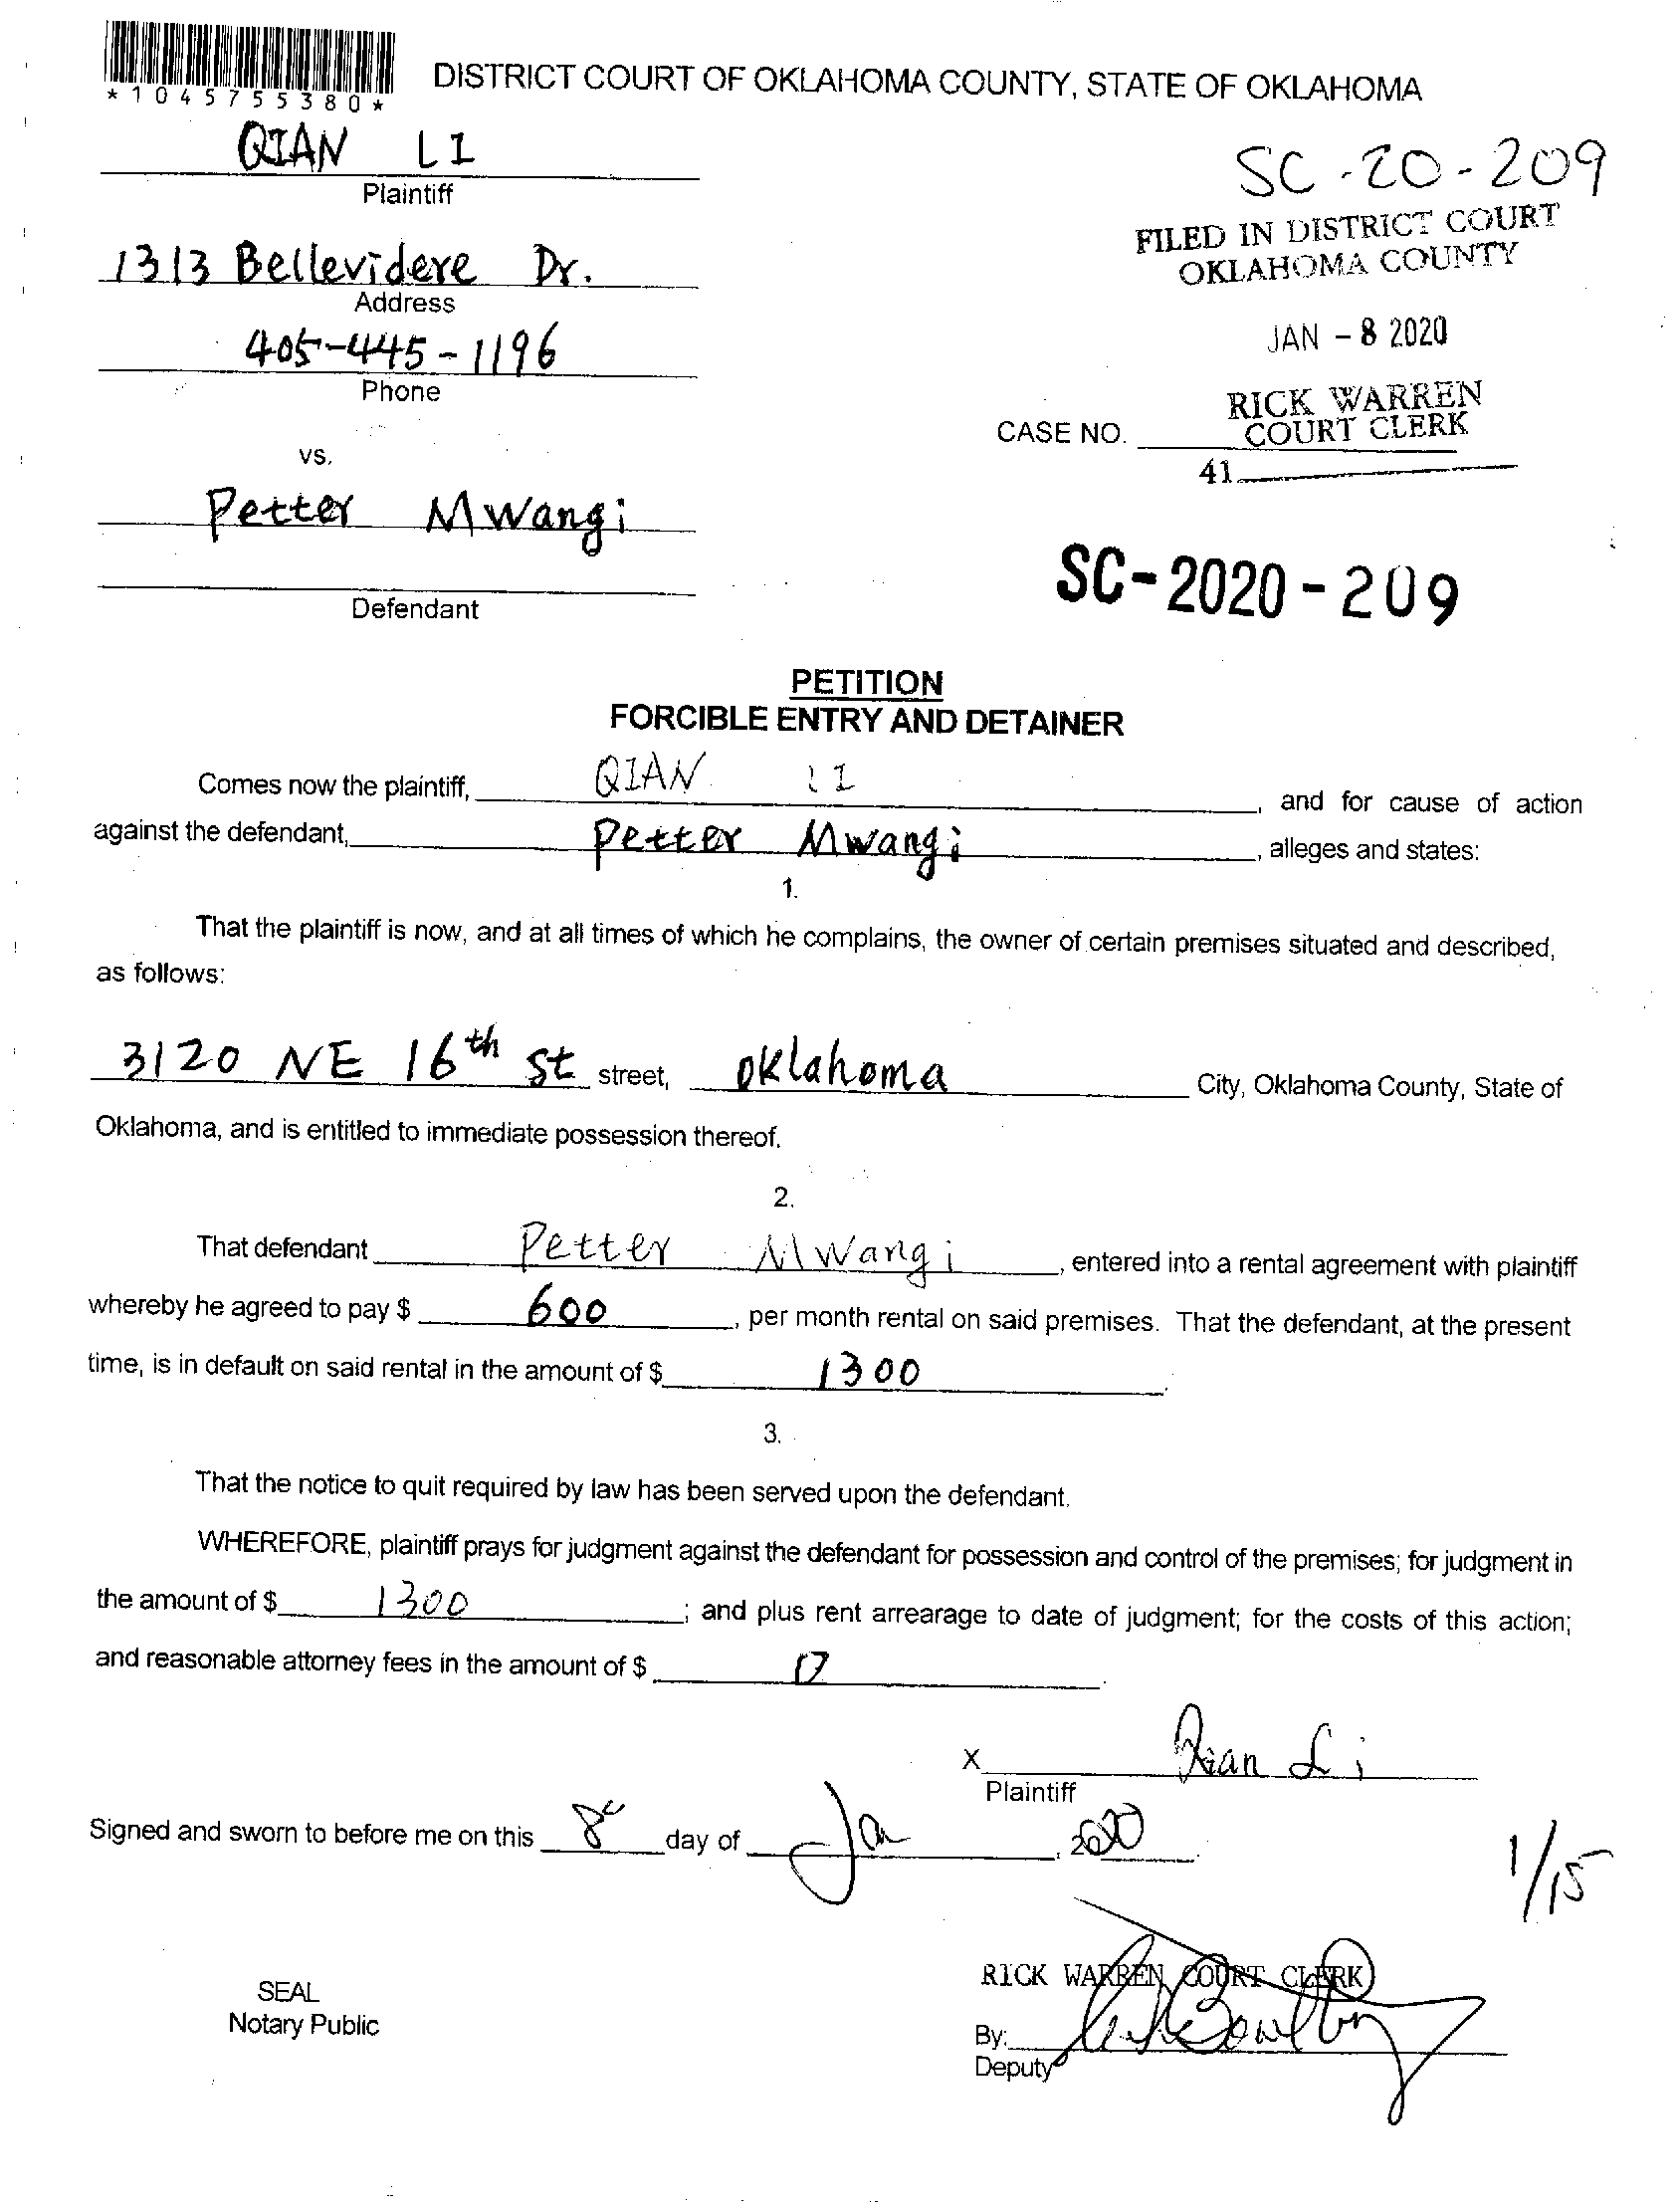 *1045755380*
DISTRICT COURT OF OKLAHOMA COUNTY, STATE OF OKLAHOMA
QIAN LI
Plaintiff
SC-20-209
FILED IN DISTRICT COURT
OKLAHOMA COUNTY
1313 Bellevidere Dr.
Address
JAN - 8 2020
405-445-1196
Phone
RICK WARREN
COURT CLERK
CASE NO.
41
vs.
Petter Mwangi
Defendant
SC-2020-209
PETITION
FORCIBLE ENTRY AND DETAINER
Comes now the plaintiff, QIAN LI, and for cause of action
against the defendant, Petter Mwangi, alleges and states:
1.
That the plaintiff is now, and at all times of which he complains, the owner of certain premises situated and described,
as follows:
3120 NE 16th St street, oklahoma City, Oklahoma County, State of
Oklahoma, and is entitled to immediate possession thereof.
2.
That defendant Petter Mwangi, entered into a rental agreement with plaintiff
whereby he agreed to pay $ 600, per month rental on said premises. That the defendant, at the present
time, is in default on said rental in the amount of $ 1300.
3.
That the notice to quit required by law has been served upon the defendant.
WHEREFORE, plaintiff prays for judgment against the defendant for possession and control of the premises; for judgment in
the amount of $ 1300; and plus rent arrearage to date of judgment; for the costs of this action;
and reasonable attorney fees in the amount of $
X Qian Li
Plaintiff
Signed and sworn to before me on this 8 day of Jan, 2020.
1/15
SEAL
Notary Public
RICK WARREN COURT CLERK
By:
Deputy